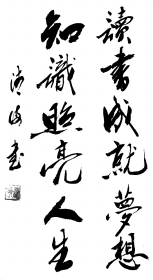 讀書成就夢想
知識照亮人生
清海書